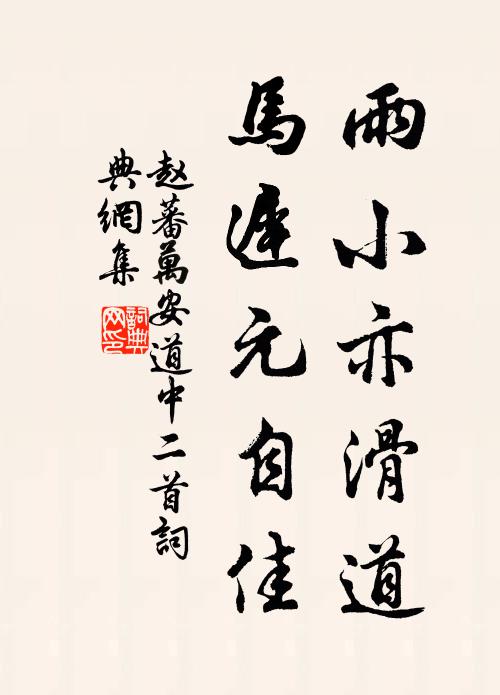 雨小亦滑道
馬遲元自佳
赵蕃萬安道中二首詞
典網集
詞典
网印